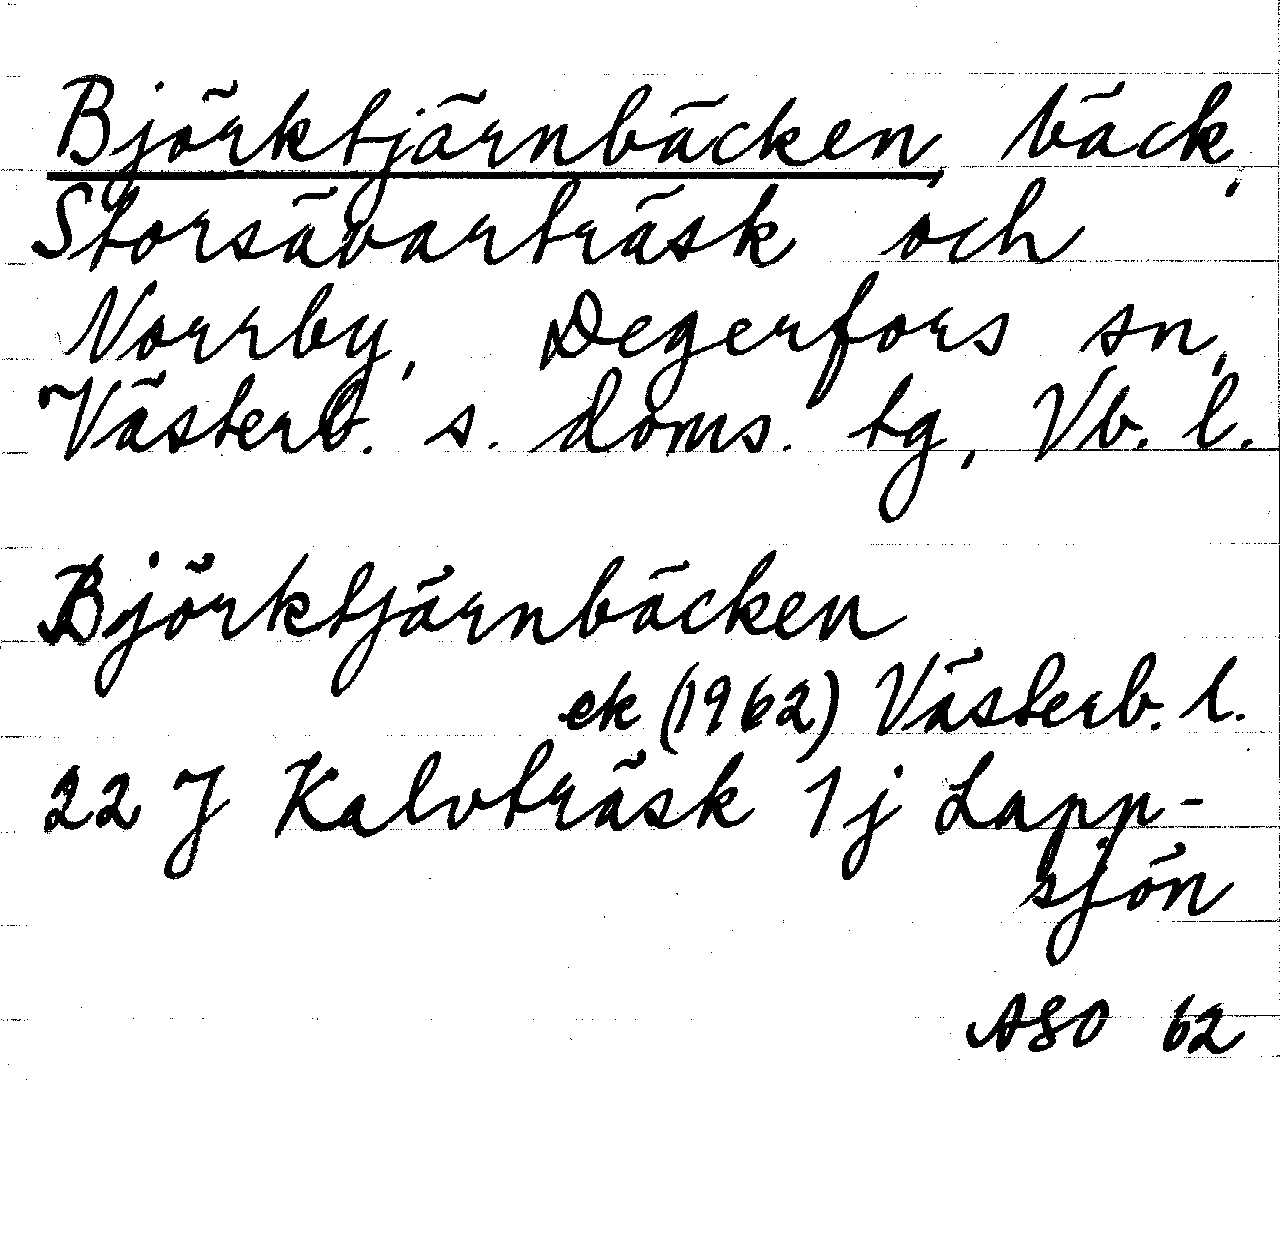 Björktjärnbäcken, bäck,
Storsävarträsk och
Norrby, Degerfors sn,
Västerb. s. doms. tg, Vb. l.
Björktjärnbäcken
ek (1962) Västerb. l.
22 J Kalvträsk 1j Lapp-
sjön
ASO 62